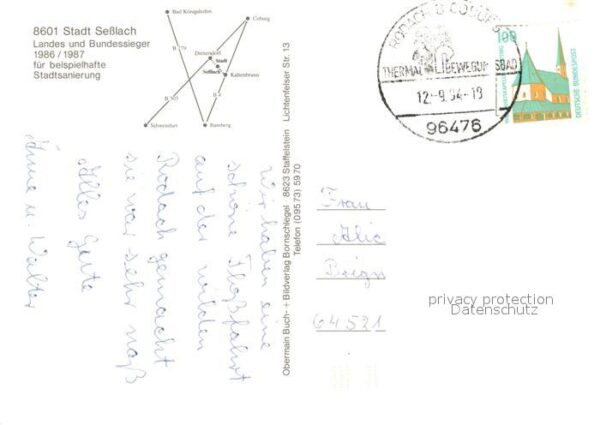 8601 Stadt Seßlach
Landes und Bundessieger
1986/1987
für beispielhafte
Stadtsanierung
Bad Königshofen
Coburg
B 279
Dietersdorf
Stadt
Seßlach
Kaltenbrunn
B 4
B 303
Schweinfurt
Bamberg
Wir haben eine
schöne Floßfahrt
auf der wilden
Rodach gemacht
sie war sehr naß
Alles Gute
Änne u. Walter
Obermain Buch- + Bildverlag Bornschlegel 8623 Staffelstein Lichtenfelser Str. 13
Telefon (09573) 5970
RODACH B COBURG
THERMAL BEWEGUNGSBAD
12.-9.94-19
96476
100
DEUTSCHE BUNDESPOST
Frau
64521
privacy protection
Datenschutz